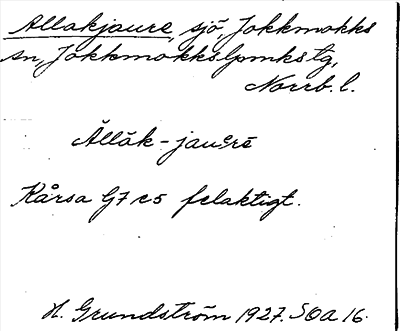 Allakjaure, sjö, Jokkmokks
sn, Jokkmokks lpmks tg,
Norrb. l.
Ållåk-jauᵉrē
Kårsa G7 c5 felaktigt.
H. Grundström 1927. SOA 16.